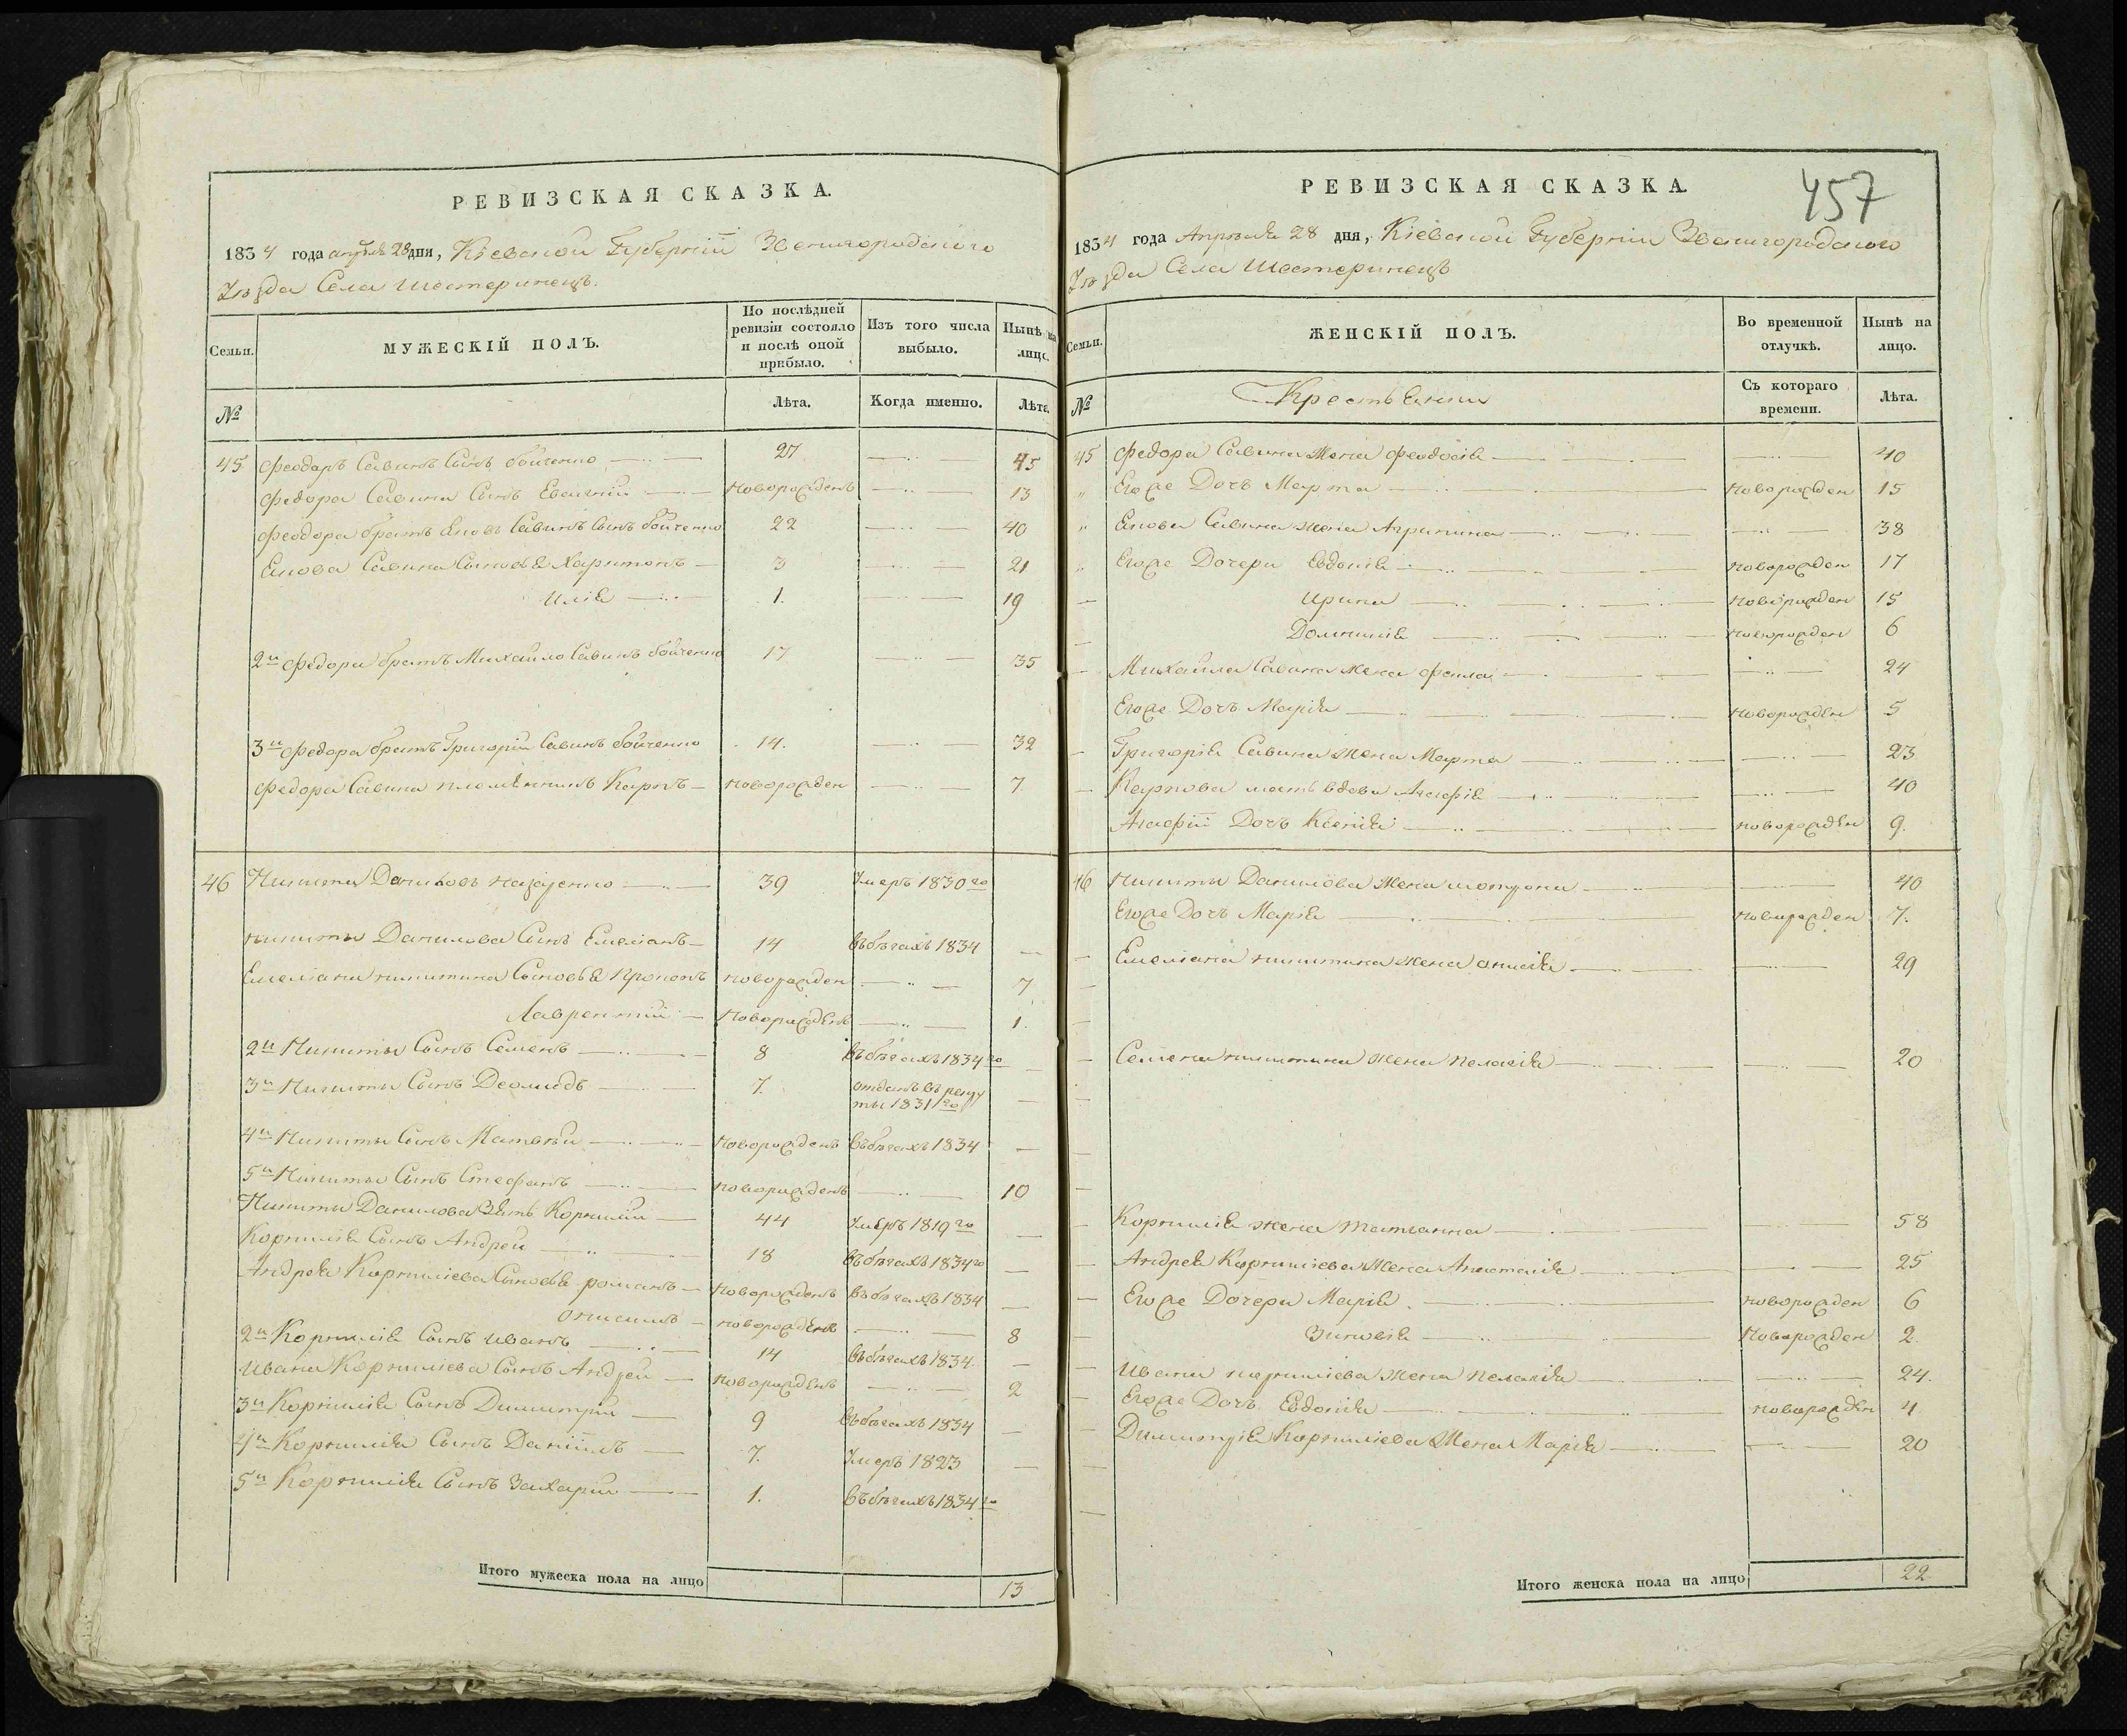 РЕВИЗСКАЯ СКАЗКА.
1834 года апрѣля 28 дня, Кіевской Губерніи Звенигородского
Уѣзда Села Шостеринецъ.
Семьи.
МУЖЕСКІЙ ПОЛЪ.
По послѣдней ревизіи состояло и послѣ оной прибыло.
Изъ того числа выбыло.
Нынѣ на лицо.
№
Лѣта.
Когда именно.
Лѣта.
45 Феодоръ Савинъ Сынъ бойченко 27 45
Федора Савина Сынъ Евгений новорожденъ 13
Феодора братъ Яковъ Савинъ Сынъ бойченко 22 40
Якова Савина Сыновья Харитонъ 3 21
Илія 1. 19
2й Федора братъ Михайло Савинъ бойченко 17 35
3й Федора братъ Григорій Савинъ бойченко 14. 32
Федора Савина племянникъ Карпъ новорожден 7
46 Никита Даниловъ назаренко 39 Умеръ 1830го
никиты Данилова Сынъ Емеліанъ 14 въбѣгахъ 1834
Емеліана никитина Сыновья Прокопъ новорожден 7
Лаврентій новорожденъ 1.
2й Никиты Сынъ Семенъ 8 въбѣгахъ 1834го
3й Никиты Сынъ Деомидъ 7. отданъ въ рекруты 1831го
4й Никиты Сынъ Матвѣй новорожденъ въбѣгахъ 1834
5й Никиты Сынъ Стефанъ новорожденъ 10
Никиты Данилова Зять Корнилій 44 Умеръ 1819го
Корнилія Сынъ Андрей 18 въбѣгахъ 1834го
Андрея Корниліева Сыновья романъ новорожденъ въбѣгахъ 1834
онисимъ новорожденъ 8
2й Корнилія Сынъ иванъ 14 въбѣгахъ 1834
ивана Корниліева Сынъ Андрей новорожденъ 2
3й Корнилія Сынъ Димитрій 9 въбѣгахъ 1834
4й Корнилія Сынъ Даніилъ 7. Умеръ 1823
5й Корнилія Сынъ Захарій 1. въбѣгахъ 1834го
Итого мужеска пола на лицо 13
457
РЕВИЗСКАЯ СКАЗКА.
1834 года Апрѣля 28 дня, Кіевской Губерніи Звенигородского
Уѣзда Села Шостеринецъ
Семьи.
ЖЕНСКІЙ ПОЛЪ.
Во временной отлучкѣ.
Нынѣ на лицо.
№
Крестьянки
Съ котораго времени.
Лѣта.
45 Федора Савина Жена Феодосія 40
Егоже Дочь Марта новорожден 15
Якова Савина жена Агрипина 38
Егоже Дочери Евдокія новорожден 17
Ирина новорожден 15
Домникія новорожден 6
Михайла Савина Жена Фекла 24
Егоже Дочь Марія новорожден 5
Григорія Савина Жена Марта 23
Карпова мать вдова Агафія 40
Агафіи Дочь Ксенія новорожден 9.
46 Никиты Данилова Жена мотрона 40
Егоже Дочь Марія новорожден 7.
Емеліана никитина жена онисія 29
Семена никитина жена пелагія 20
Корнилія жена татіанна 58
Андрея Корниліева Жена Анастасія 25
Егоже Дочери Марія новорожден 6
Зиновія новорожден 2
Ивана корниліева жена пелагія 24.
Егоже Дочь Евдокія новорожден 4
Димитрія Корниліева Жена Марія 20
Итого женска пола на лицо 22